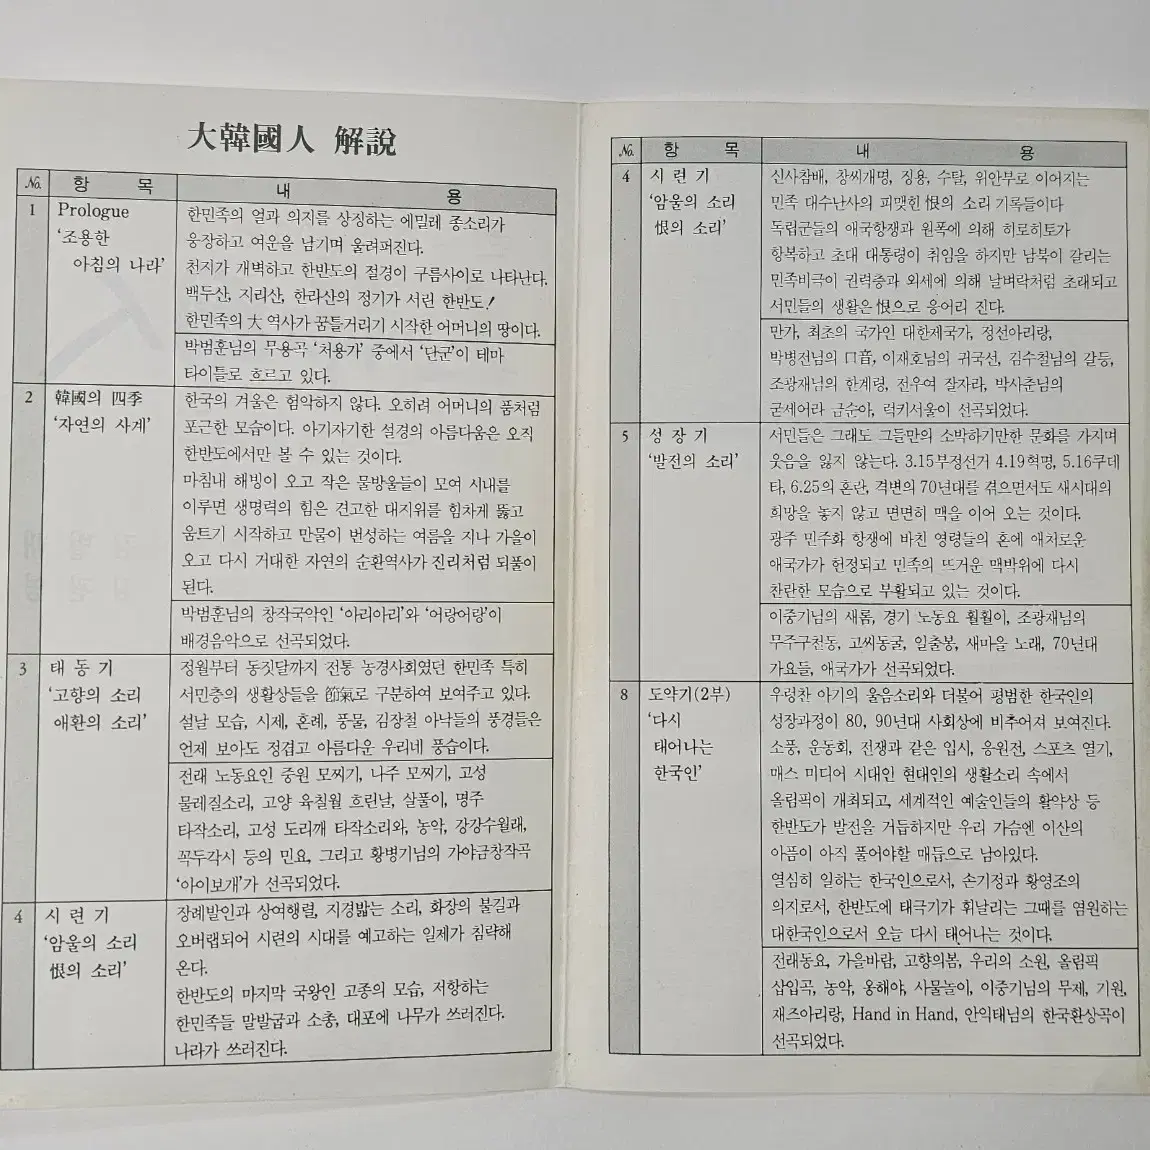 大韓國人 解說
No. 항 목 내 용
1 Prologue
‘조용한
아침의 나라’
한민족의 얼과 의지를 상징하는 에밀레 종소리가
웅장하고 여운을 남기며 울려퍼진다.
천지가 개벽하고 한반도의 절경이 구름사이로 나타난다.
백두산, 지리산, 한라산의 정기가 서린 한반도!
한민족의 大 역사가 꿈틀거리기 시작한 어머니의 땅이다.
박범훈님의 무용곡 ‘처용가’ 중에서 ‘단군’이 테마
타이틀로 흐르고 있다.
2 韓國의 四季
‘자연의 사계’
한국의 겨울은 험악하지 않다. 오히려 어머니의 품처럼
포근한 모습이다. 아기자기한 설경의 아름다움은 오직
한반도에서만 볼 수 있는 것이다.
마침내 해빙이 오고 작은 물방울들이 모여 시내를
이루면 생명력의 힘은 견고한 대지위를 힘차게 뚫고
움트기 시작하고 만물이 번성하는 여름을 지나 가을이
오고 다시 거대한 자연의 순환역사가 진리처럼 되풀이
된다.
박범훈님의 창작국악인 ‘아리아리’와 ‘어랑어랑’이
배경음악으로 선곡되었다.
3 태 동 기
‘고향의 소리
애환의 소리’
정월부터 동짓달까지 전통 농경사회였던 한민족 특히
서민층의 생활상들을 節氣로 구분하여 보여주고 있다.
설날 모습, 시제, 혼례, 풍물, 김장철 아낙들의 풍경들은
언제 보아도 정겹고 아름다운 우리네 풍습이다.
전래 노동요인 중원 모찌기, 나주 모찌기, 고성
물레질소리, 고양 육칠월 흐린날, 살풀이, 명주
타작소리, 고성 도리깨 타작소리와, 농악, 강강수월래,
꼭두각시 등의 민요, 그리고 황병기님의 가야금창작곡
‘아이보개’가 선곡되었다.
4 시 련 기
‘암울의 소리
恨의 소리’
장례발인과 상여행렬, 지경밟는 소리, 화장의 불길과
오버랩되어 시련의 시대를 예고하는 일제가 침략해
온다.
한반도의 마지막 국왕인 고종의 모습, 저항하는
한민족들 말발굽과 소총, 대포에 나무가 쓰러진다.
나라가 쓰러진다.
No. 항 목 내 용
4 시 련 기
‘암울의 소리
恨의 소리’
신사참배, 창씨개명, 징용, 수탈, 위안부로 이어지는
민족 대수난사의 피맺힌 恨의 소리 기록들이다
독립군들의 애국항쟁과 원폭에 의해 히로히토가
항복하고 초대 대통령이 취임을 하지만 남북이 갈리는
민족비극이 권력층과 외세에 의해 날벼락처럼 초래되고
서민들의 생활은 恨으로 응어리 진다.
만가, 최초의 국가인 대한제국가, 정선아리랑,
박병천님의 口音, 이재호님의 귀국선, 김수철님의 갈등,
조광재님의 한계령, 전우여 잘자라, 박시춘님의
굳세어라 금순아, 럭키서울이 선곡되었다.
5 성 장 기
‘발전의 소리’
서민들은 그래도 그들만의 소박하기만한 문화를 가지며
웃음을 잃지 않는다. 3.15부정선거 4.19혁명, 5.16쿠데
타, 6.25의 혼란, 격변의 70년대를 겪으면서도 새시대의
희망을 놓지 않고 면면히 맥을 이어 오는 것이다.
광주 민주화 항쟁에 바친 영령들의 혼에 애처로운
애국가가 헌정되고 민족의 뜨거운 맥박위에 다시
찬란한 모습으로 부활되고 있는 것이다.
이중기님의 새롬, 경기 노동요 훨훨이, 조광재님의
무주구천동, 고씨동굴, 일출봉, 새마을 노래, 70년대
가요들, 애국가가 선곡되었다.
8 도약기(2부)
‘다시
태어나는
한국인’
우렁찬 아기의 울음소리와 더불어 평범한 한국인의
성장과정이 80, 90년대 사회상에 비추어져 보여진다.
소풍, 운동회, 전쟁과 같은 입시, 응원전, 스포츠 열기,
매스 미디어 시대인 현대인의 생활소리 속에서
올림픽이 개최되고, 세계적인 예술인들의 활약상 등
한반도가 발전을 거듭하지만 우리 가슴엔 이산의
아픔이 아직 풀어야할 매듭으로 남아있다.
열심히 일하는 한국인으로서, 손기정과 황영조의
의지로서, 한반도에 태극기가 휘날리는 그때를 염원하는
대한국인으로서 오늘 다시 태어나는 것이다.
전래동요, 가을바람, 고향의봄, 우리의 소원, 올림픽
삽입곡, 농악, 옹해야, 사물놀이, 이중기님의 무제, 기원,
재즈아리랑, Hand in Hand, 안익태님의 한국환상곡이
선곡되었다.